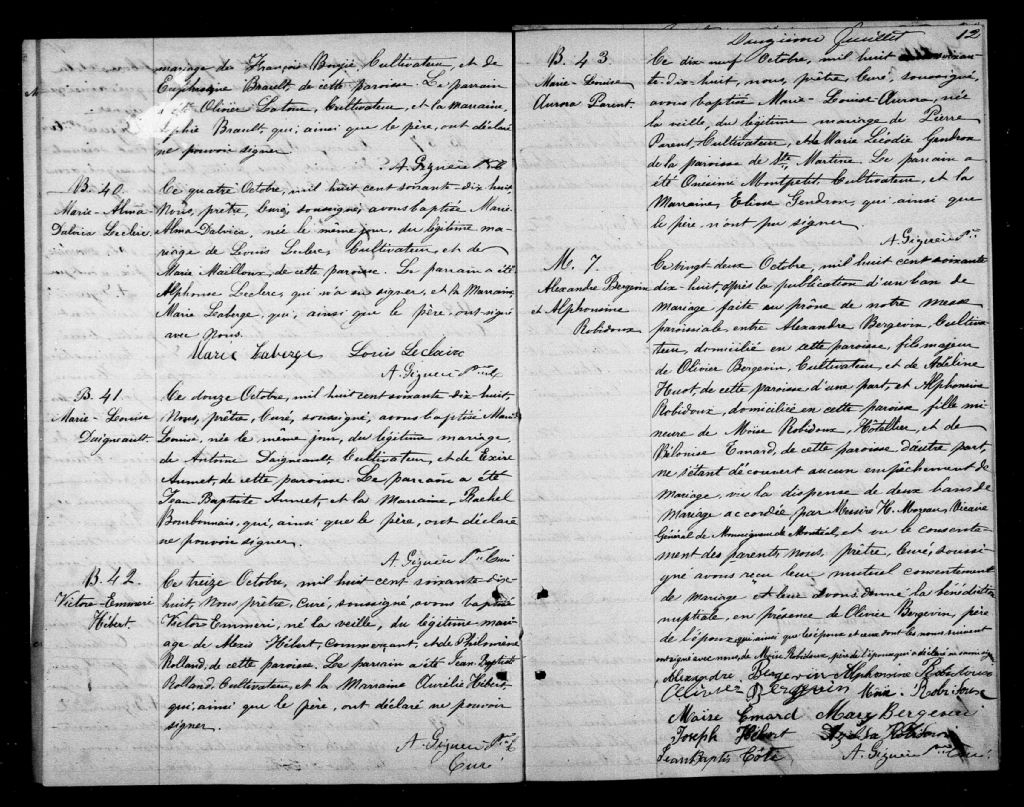 mariage de François Bougie Cultivateur et de
Euphrosine Brault, de cette paroisse. Le parrain
a été Olivier Cultivateur, et la marraine,
Sophie Brault, qui, ainsi que le père, ont déclaré
ne pouvoir signer.
A. Giguère
B. 40.
Marie-Alma-
Dalvica Leclerc
Ce quatre Octobre, mil huit cent soixante-dix huit,
Nous, prêtre, Curé, soussigné, avons baptisé Marie
Alma Dalvica, née le même jour, du légitime ma-
riage de Louis Leclerc, Cultivateur, et de
Marie Mailloux, de cette paroisse. Le parrain a été
Alphonse Leclerc, qui n'a su signer, et la Marraine,
Marie Laberge, qui, ainsi que le père, ont signé
avec Nous.
Marie Laberge Louis Leclaire
A. Giguère
B. 41.
Marie-Louise
Daigneault.
Ce douze Octobre, mil huit cent soixante dix huit,
Nous, prêtre, Curé, soussigné, avons baptisé Marie
Louise, née le même jour, du légitime mariage,
de Antoine Daigneault, Cultivateur, et de Exire
de cette paroisse. Le parrain a été
Jean-Baptiste et la Marraine, Rachel
Bourbonnais, qui, ainsi que le père, ont déclaré
ne pouvoir signer.
A. Giguère Ptre Curé
B. 42.
Victore-Emmeri
Hébert.
Ce treize Octobre, mil huit cent soixante-dix-
huit, Nous, prêtre, curé, soussigné avons baptisé
Victore Emmeri, né la veille, du légitime mari-
age de Alexis Hébert, Commerçant, et de Philomène
Rolland, de cette paroisse. Le parrain a été Jean-Baptiste
Rolland, Cultivateur, et la Marraine Aurélie Hébert,
qui, ainsi que le père, ont déclaré ne pouvoir
signer.
A. Giguère Ptre
Curé
Douzième feuillet 12
B. 43
Marie-Louise
Aurora Parent.
Ce dix neuf Octobre, mil huit soixan-
te-dix-huit, nous, prêtre, Curé, soussigné,
avons baptisé Marie-Louise-Aurora, née
la veille, du légitime mariage de Pierre
Parent, Cultivateur, et de Marie Léocadie Gendron
de la paroisse de Ste Martine. Le parrain a
été Onésime Montpetit, Cultivateur, et la
Marraine, Elisse Gendron, qui ainsi que
le père n'ont pu signer.
A. Giguère Ptre
M. 7.
Alexandre Bergevin
et Alphonsine
Robidoux
Ce vingt-deux Octobre, mil huit cent soixante
dix-huit, après la publication d'un ban de
mariage faite au prône de notre messe
paroissiale, entre Alexandre Bergevin, Cultiva-
teur, domicilié en cette paroisse, fils majeur
de Olivier Bergevin, Cultivateur, et de Adéline
Huot, de cette paroisse d'une part, et Alphonsine
Robidoux, domiciliée en cette paroisse, fille mi-
neure de Moïse Robidoux, Hôtellier, et de
Emard, de cette paroisse, d'autre part,
ne s'étant découvert aucun empêchement de
mariage, vu la dispense de deux bans de
Mariage accordée par Messire H. Moreau, Vicaire
Général de Monseigneur de Montréal, et vu le consente-
ment des parents, Nous, prêtre, Curé, soussi-
gné avons reçu leur mutuel consentement
de mariage et leur avons donné la bénédiction
nuptiale, en présence de Olivier Bergevin, père
de l'époux, qui ainsi que les époux et ceux dont les noms suivent
ont signé avec nous, de Moïse Robidoux, père de l'épouse qui a déclaré ne savoir signer
Alexandre Bergevin Alphonsine Robidoux
Olivier Bergevin Moïse Robidoux
Moïse Emard Mary Bergevin
Joseph Hébert Robidoux
Jean Baptis Côté A. Giguère Ptre Curé